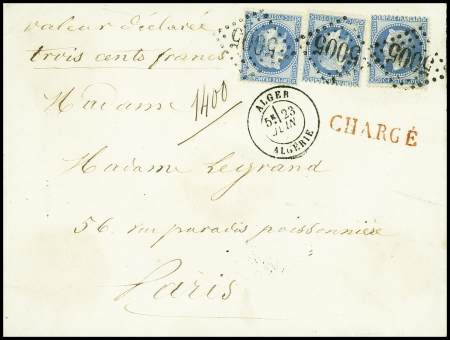 valeur déclarée
trois cents francs
5005
5005
5005
Madame
1400
ALGER
5E 23
JUIN
ALGÉRIE
CHARGÉ
Madame Legrand
56, rue paradis poissonnière
Paris